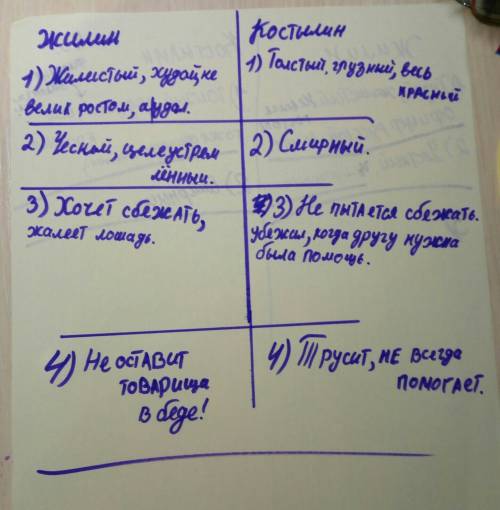 Жилин
1) Жилистый, худой, не
велик ростом, а удал.
2) Чесный, целеустрем
лённый.
3) Хочет сбежать,
жалеет лошадь.
4) Не оставит
товарища
в беде!
Костылин
1) Толстый, грузный, весь
красный
2) Смирный.
3) Не пытается сбежать.
Убежал, когда другу нужна
была помощь.
4) Трусит, не всегда
помогает.